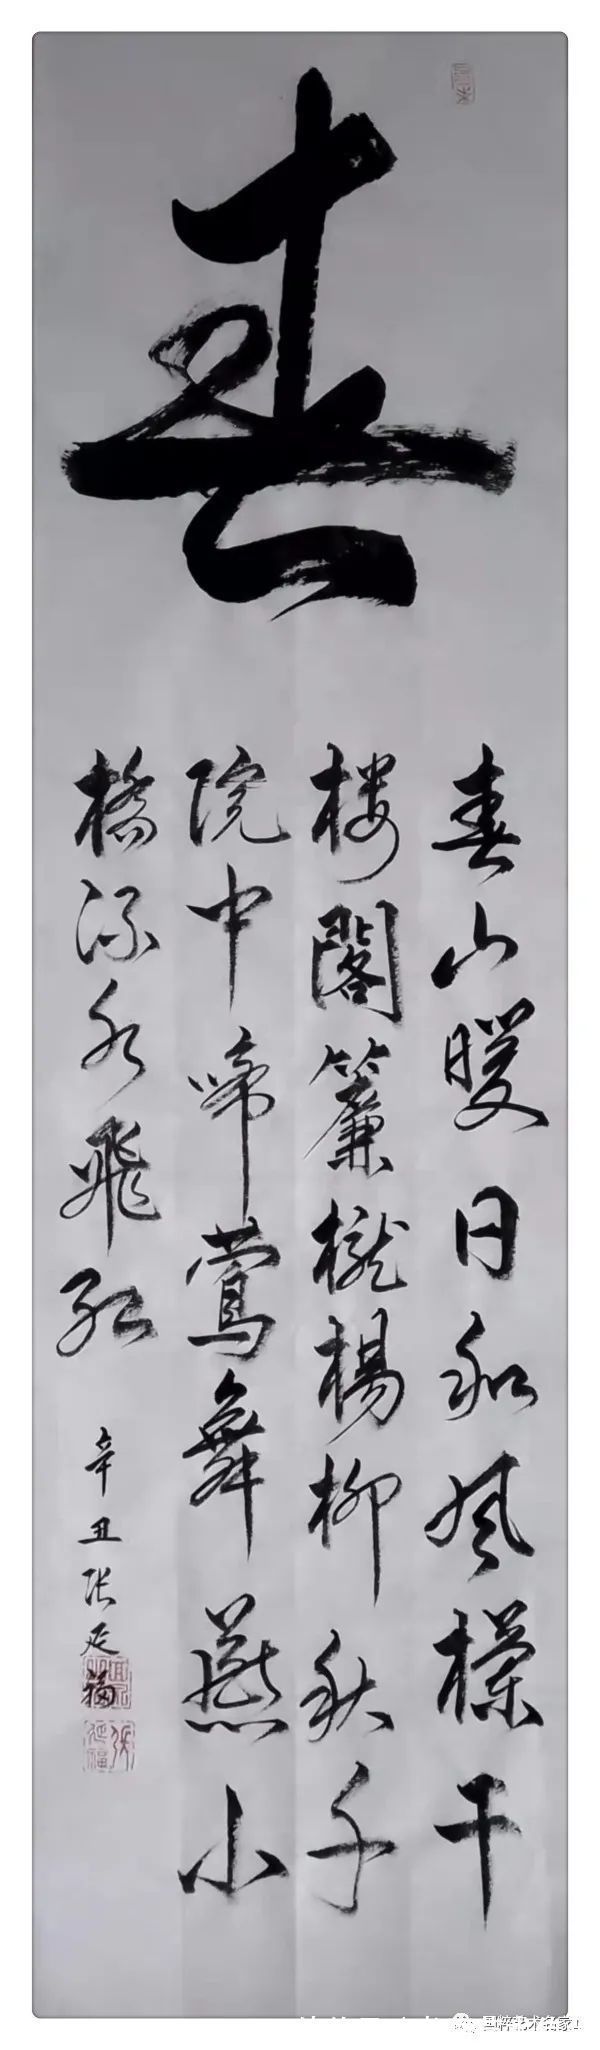 春
春山暖日和風欄干
楼閣簾櫳楊柳秋千
院中啼鶯舞燕小
橋流水飛紅
辛丑张延福
张延福